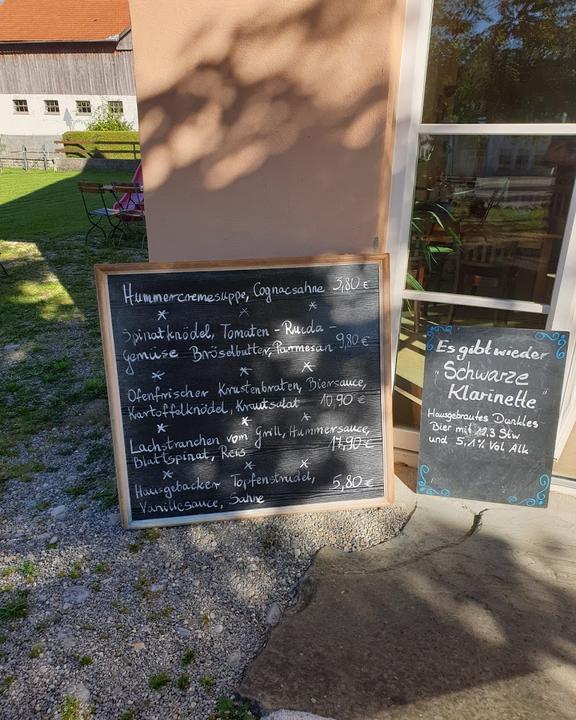 Hummercremesuppe, Cognacsahne 5,80 €
Spinatknödel, Tomaten - Rucola -
gemüse Bröselbutter, Parmesan 9,80 €
Ofenfrischer Krustenbraten, Biersauce,
Kartoffelknödel, Krautsalat 10,90 €
Lachstranchen vom Grill, Hummersauce,
Blattspinat, Reis 17,90 €
Hausgebackter Topfenstrudel,
Vanillesauce, Sahne 5,80 €
Es gibt wieder
"Schwarze
Klarinette"
Hausgebrautes Dunkles
Bier mit 12,3 Stw
und 5,1% Vol Alk